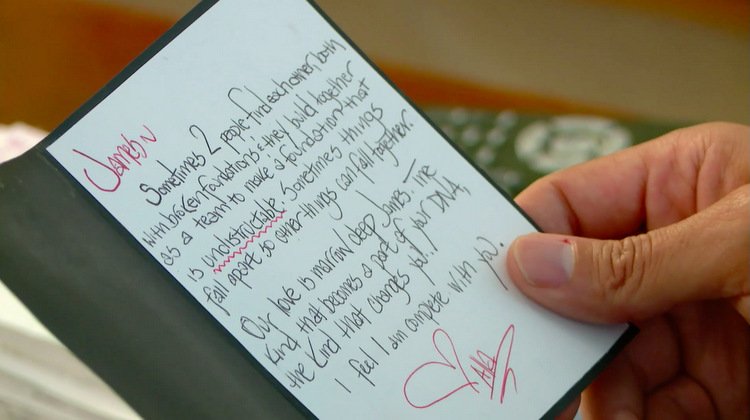 James ~
Sometimes 2 people find each other, both
with broken foundations & they build together
as a team to make a foundation that
is undistructable. Sometimes things
fall apart so other things can fall together.
Our love is marrow deep James. The
kind that becomes a part of your DNA,
the kind that changes you!
I feel I am compete with you.